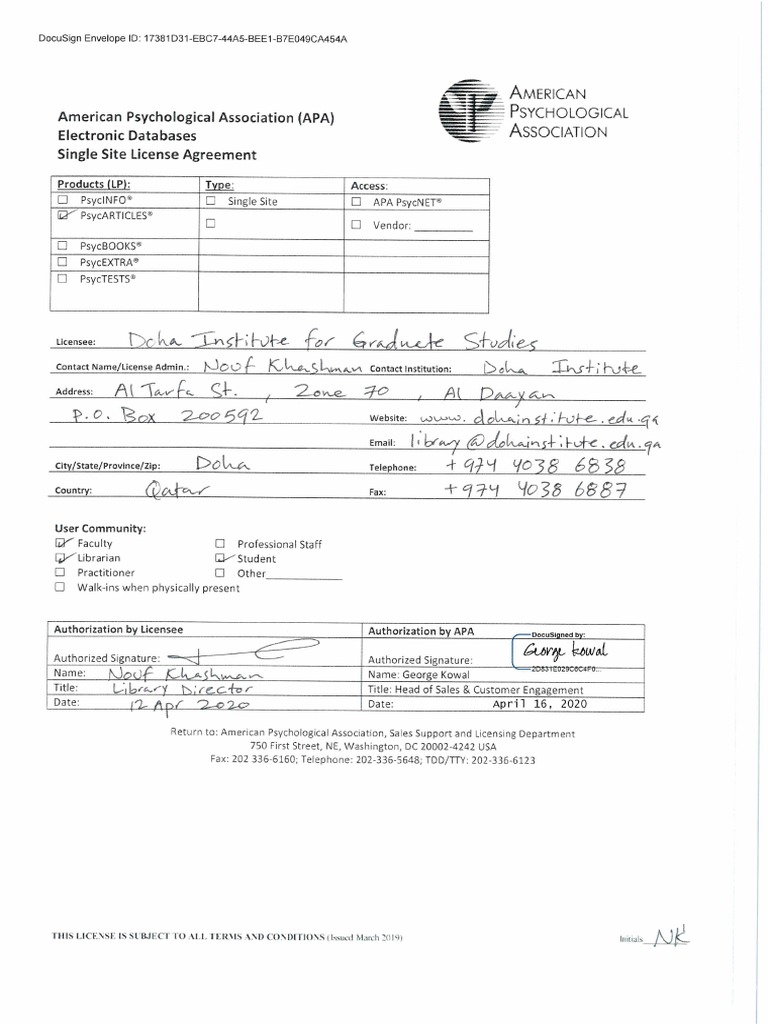 DocuSign Envelope ID: 17381D31-EBC7-44A5-BEE1-B7E049CA454A
AMERICAN
PSYCHOLOGICAL
ASSOCIATION
American Psychological Association (APA)
Electronic Databases
Single Site License Agreement
Products (LP): Type: Access:
☐ PsycINFO® ☐ Single Site ☐ APA PsycNET®
☑ PsycARTICLES® ☐ ☐ Vendor: ________
☐ PsycBOOKS®
☐ PsycEXTRA®
☐ PsycTESTS®
Licensee: Doha Institute for Graduate Studies
Contact Name/License Admin.: Nouf Khashman Contact Institution: Doha Institute
Address: Al Tarfa St. , Zone 70 , Al Daayan
P.O. Box 200592 Website: www.dohainstitute.edu.qa
Email: library@dohainstitute.edu.qa
City/State/Province/Zip: Doha Telephone: +974 4038 6838
Country: Qatar Fax: +974 4038 6887
User Community:
☑ Faculty ☐ Professional Staff
☑ Librarian ☑ Student
☐ Practitioner ☐ Other________
☐ Walk-ins when physically present
Authorization by Licensee Authorization by APA
DocuSigned by:
Authorized Signature: Authorized Signature: George Kowal
Name: Nouf Khashman Name: George Kowal
Title: Library Director Title: Head of Sales & Customer Engagement
Date: 12 Apr 2020 Date: April 16, 2020
Return to: American Psychological Association, Sales Support and Licensing Department
750 First Street, NE, Washington, DC 20002-4242 USA
Fax: 202 336-6160; Telephone: 202-336-5648; TDD/TTY: 202-336-6123
THIS LICENSE IS SUBJECT TO ALL TERMS AND CONDITIONS (Issued March 2019)
Initials NK